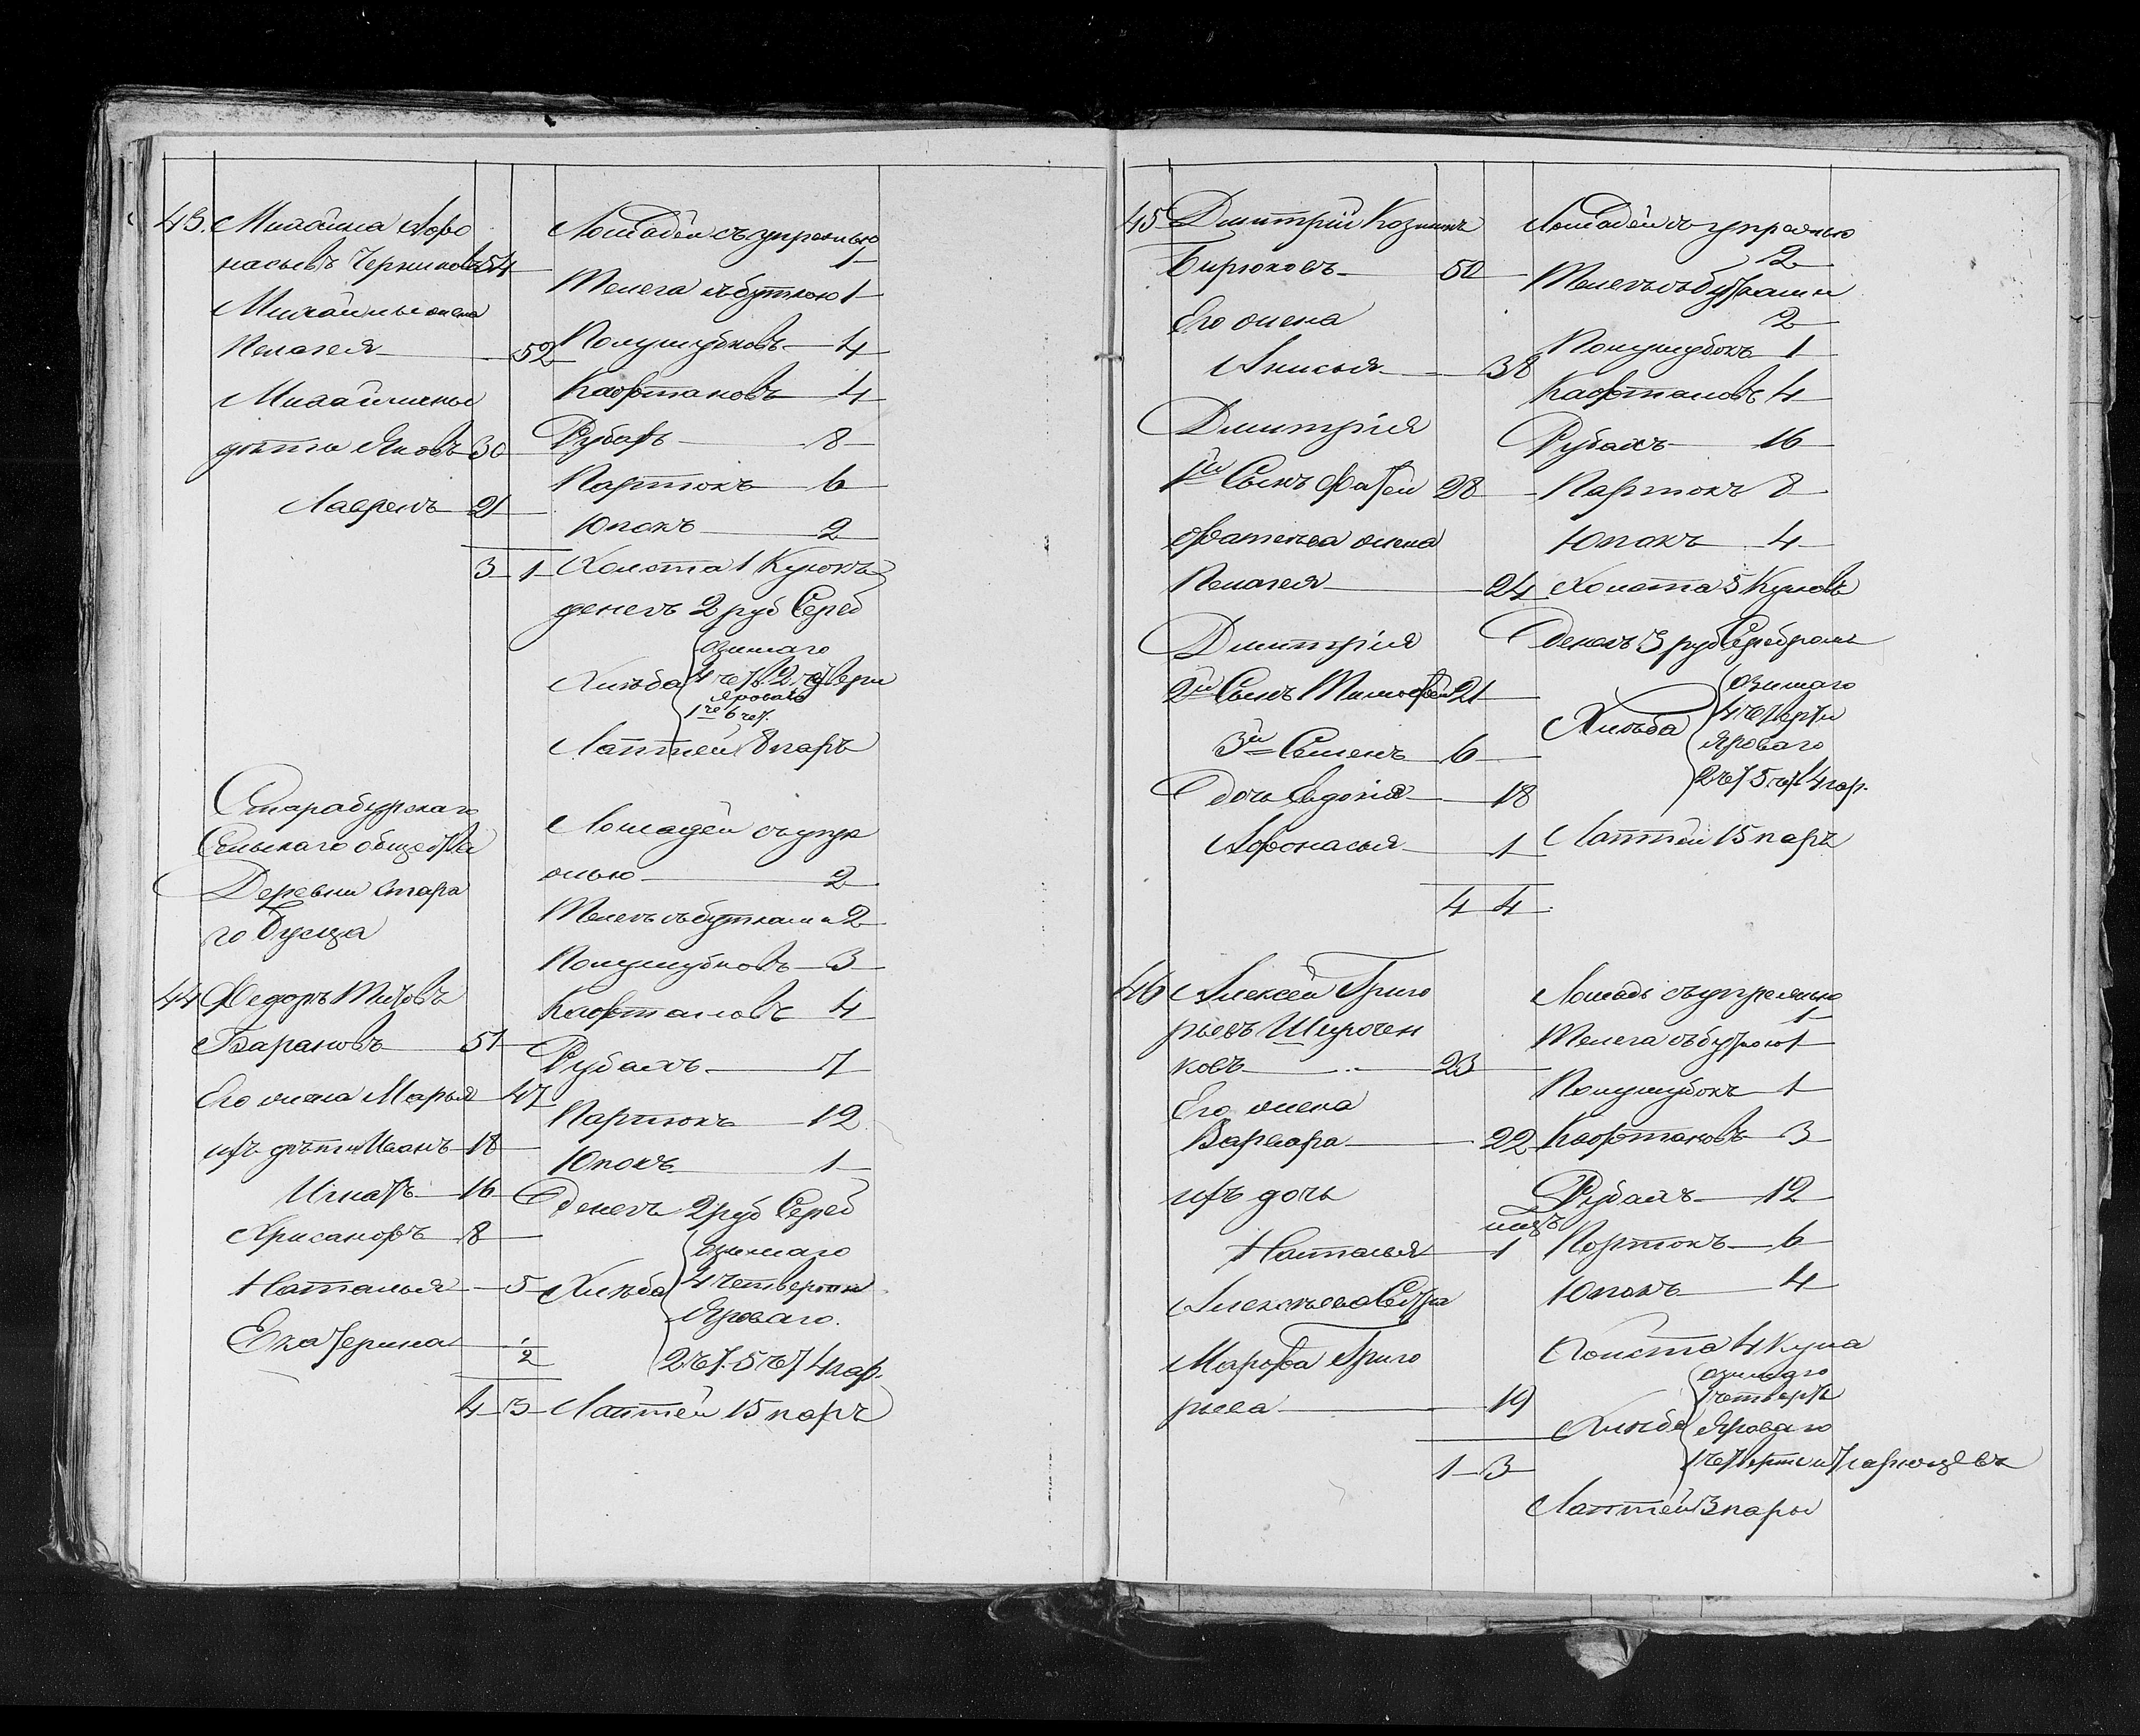 43. Михайла Афо
насьевъ Черниковъ 54
Михайлы жена
Пелагея 52
Михайлины
дѣти Яковъ 30
Лавренъ 21
3 1
Лошадей съ упряжью 1
Телега съ буткою 1
Полушубковъ 4
Кафтановъ 4
Рубахъ 8
Партокъ 6
Юпокъ 2
Холста 1 Кусокъ
денегъ 2 руб Сереб
озимаго
Хлѣба 4 чет. 2 четвери
Яроваго
1 че 6 чет.
Лаптей 8 паръ
Сельскаго общества
Деревни Стара
го
44 Федоръ Титовъ
Барановъ 51
Его жена Марья 47
ихъ дѣти Иванъ 18
Игнатъ 16
Хрисанфъ 8
Наталья 5
Екатерина 1/2
4 3
Лошадей съ упря
жью 2
Телегъ съ бутками 2
Полушубковъ 3
Кафтановъ 4
Рубахъ 7
Партокъ 12
Юпокъ 1
Денегъ 2 руб Сереб
озимаго
Хлѣба 4 четверти
Яроваго.
2 чет. 5 чет 4 гар.
Лаптей 15 паръ
45 Дмитрій Козминъ
Бирюковъ 50
Его жена
Анисья 38
Дмитрія
1й Сынъ Фатей 28
Фатеева жена
Пелагея 24
Дмитрія
2й Сынъ Тимофей 21
3й Семенъ 6
Дочь Евдокія 18
Афонасья 1
4 4
Лошадей съ упряжью
2
Телегъ съ бутками
2
Полушубокъ 1
Кафтановъ 4
Рубахъ 16
Партокъ 8
Юпокъ 4
Холста 5 Кусковъ
Денегъ 3 руб Серебромъ
озимаго
Хлѣба 4 четверти
Яроваго
2 чет 5 чет 4 гар.
Лаптей 15 паръ
46 Алексей Григо
рьевъ Широчен
ковъ 23
Его жена
Варвара 22
ихъ дочь
Наталья 1
Алексеева Сестра
Марфа Григо
рьева 19
1 3
Лошадь съ упряжью
1
Телега съ буткою 1
Полушубокъ 1
Кафтановъ 3
Рубахъ 12
Портокъ 6
Юпокъ 4
Холста 4 Куска
озимаго
1 четверть
Хлѣба Яроваго
1 четверть и 7 гарнцевъ
Лаптей 3 пары